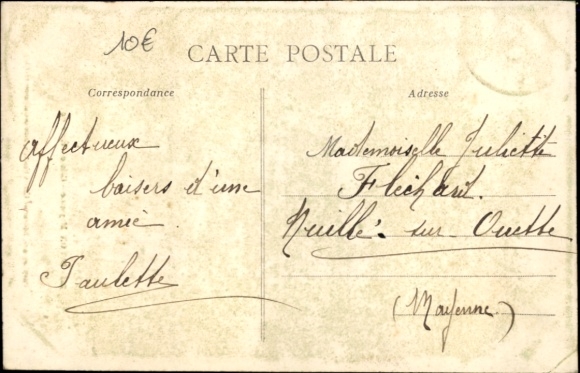 10€
CARTE POSTALE
Correspondance
Adresse
affectueux
baisers d'une
amie.
Paulette
Mademoiselle Juliette
Fléchard.
Nuillé-sur-Ouette
(Mayenne)